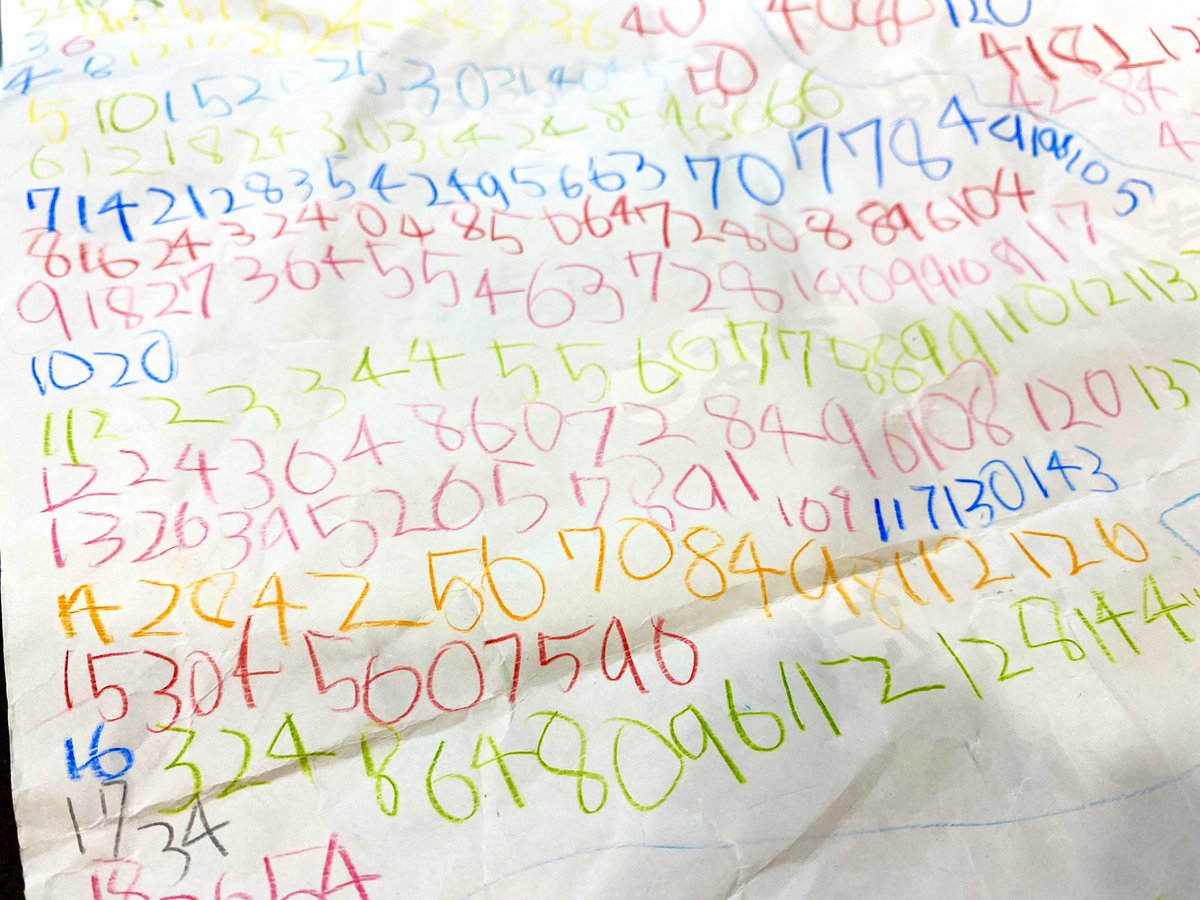 40 4080 120
36 4182 12
4 8 12 16 20 24 28 32 36
5 10 15 20 25 30 35 40 45 50 42 84
6 12 18 24 30 36 42 48 54 60 66
7 14 21 28 35 42 49 56 63 70 77 84 91 98 105
8 16 24 32 40 48 50 64 72 80 88 96 104
9 18 27 36 45 54 63 72 81 90 99 108 117
10 20
11 22 33 44 55 66 77 88 99 110 121 13
12 24 36 48 60 72 84 96 108 120 132
13 26 39 52 65 78 91 109 117 130 143
14 28 42 56 70 84 98 112 126
15 30 45 60 75 90
16 32 48 64 80 96 112 128 144
17 34
18 36 54